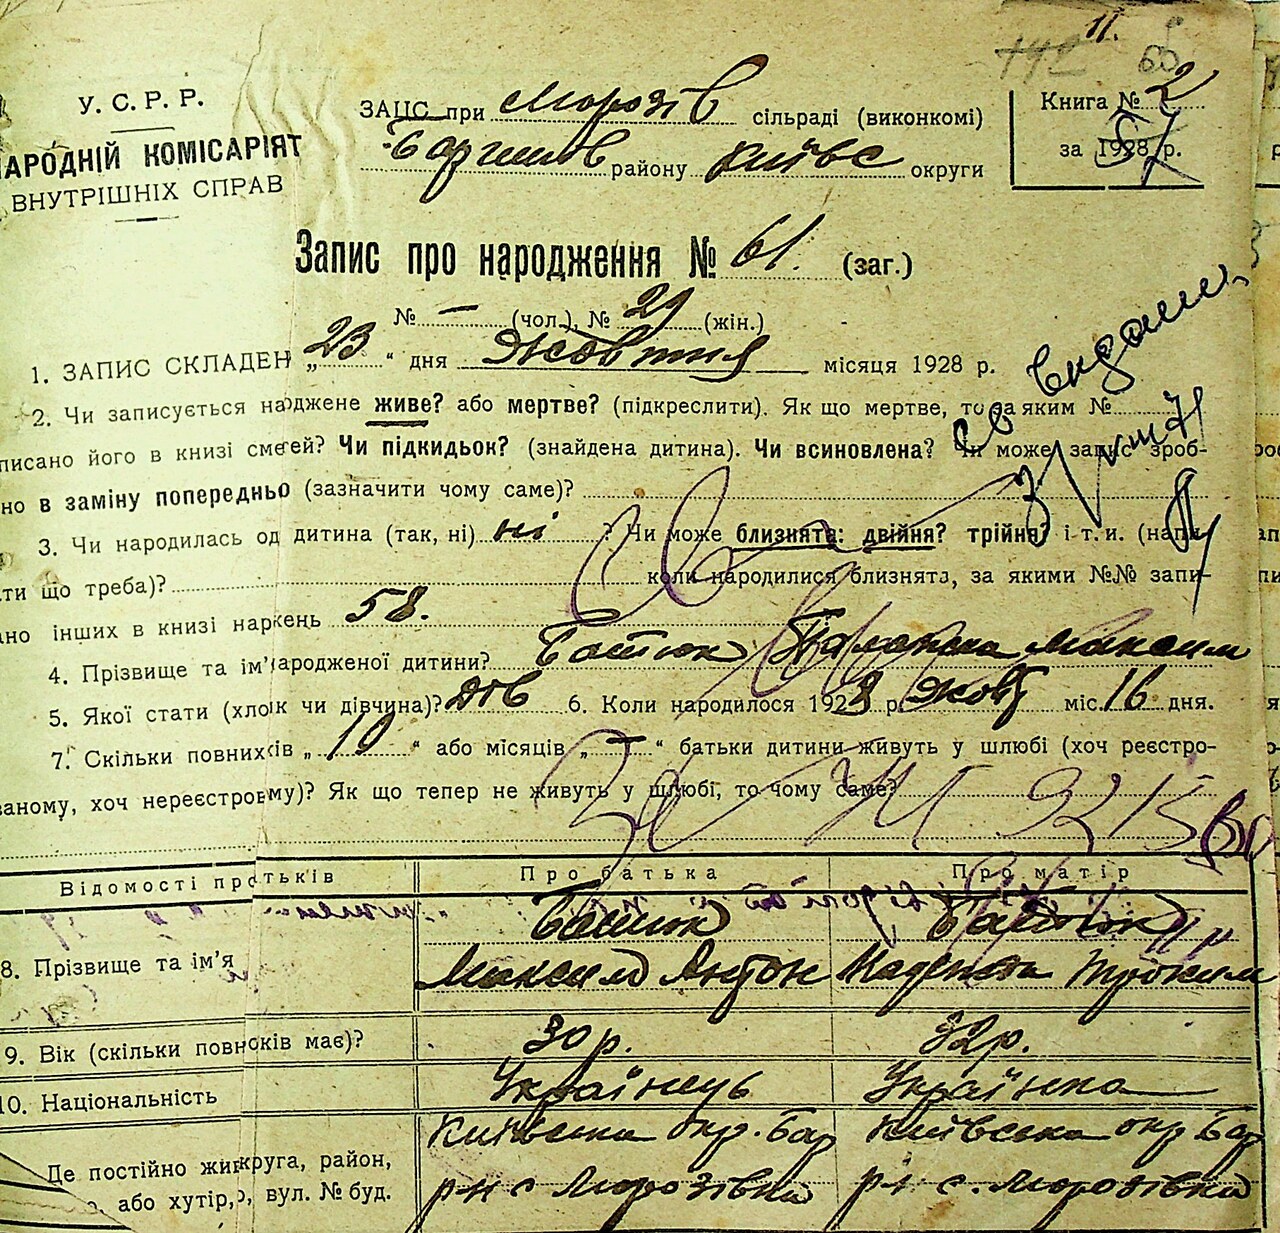 11.
У. С. Р. Р.
НАРОДНІЙ КОМІСАРІЯТ
ВНУТРІШНІХ СПРАВ
ЗАЦС при Морозів сільраді (виконкомі)
Баришів району Київс округи
Книга № 2
за 1928 р.
Запис про народження № 61. (заг.)
№ — (чол.), № 29 (жін.)
1. ЗАПИС СКЛАДЕН „23“ дня Жовтня місяця 1928 р.
2. Чи записується народжене живе? або мертве? (підкреслити). Як що мертве, то за яким №
писано його в книзі смертей? Чи підкидьок? (знайдена дитина). Чи всиновлена? Чи може запис зроб-
но в заміну попередньо (зазначити чому саме)?
3. Чи народилась од дитина (так, ні) ні ? Чи може близнята: двійня? трійня? і т. и. (напи-
ти що треба)? коли народилися близнята, за якими №№ запи-
ано інших в книзі наржень 58.
4. Прізвище та ім' народженої дитини? Бастюк Палажка Максим
5. Якої стати (хлопчик чи дівчина)? дів 6. Коли народилося 1928 р. Жовт міс. 16 дня.
7. Скільки повних ків „10“ або місяців „—“ батьки дитини живуть у шлюбі (хоч реєстро-
ваному, хоч нереєстрованому)? Як що тепер не живуть у шлюбі, то чому саме?
Відомості про батьків Про батька Про матір
Бастюк Бастюк
8. Прізвище та ім'я Максим Антон
9. Вік (скільки повних років має)? 30 р. 32 р.
10. Національність Українець Українка
Київська окр. Бар Київська окр. Бар
Де постійно жив округа, район, р-н с Морозівка р-н с. Морозівка
або хутір, вул. № буд.